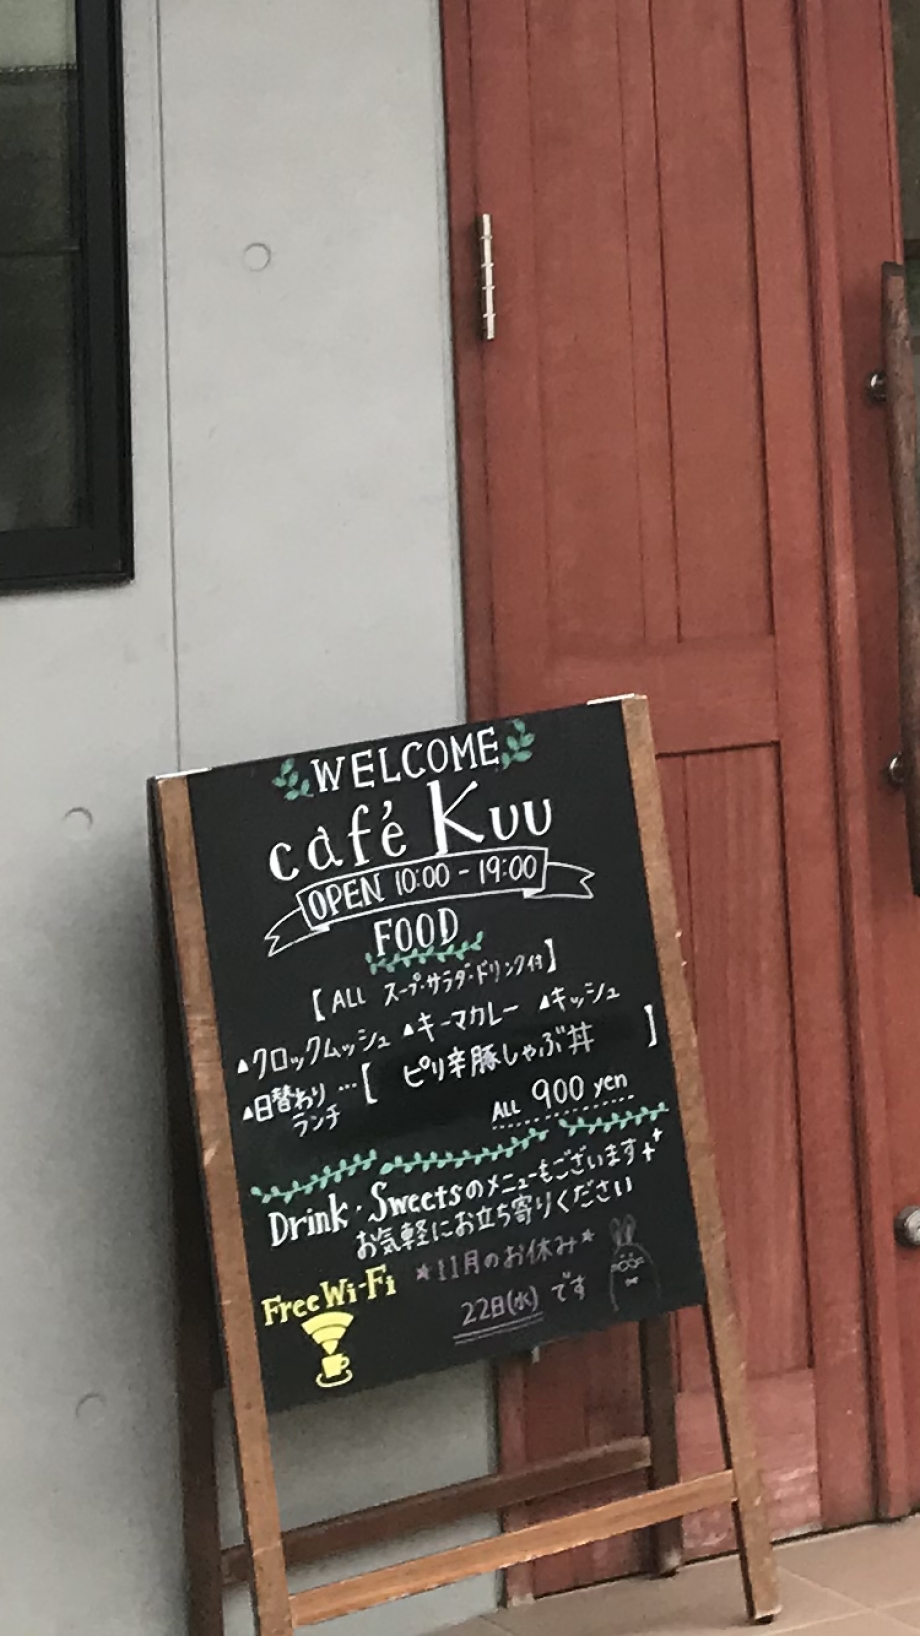 WELCOME
café Kuu
OPEN 10:00 - 19:00
FOOD
【ALL スープ・サラダ・ドリンク付】
▲クロックムッシュ ▲キーマカレー ▲キッシュ
▲日替わりランチ …【 ピリ辛豚しゃぶ丼 】
ALL 900 yen
Drink・Sweetsのメニューもございます
お気軽にお立ち寄りください
Free Wi-Fi
★11月のお休み★
22日(水)です